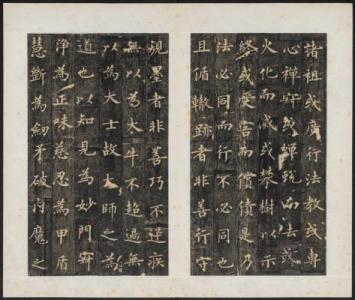 諸祖或廣行法教或專
心禪寂或蟬蛻而去或
火化而滅或攀樹以示
終或受害而償債是乃
法必同而行不必同也
且循轍跡者非善行守
規墨者非善巧不迅疾
無以為大牛不超過無
以為大士故大師之為
道也以知見為妙門寂
淨為正味慈忍為甲盾
慧斷為劍矛破內魔之